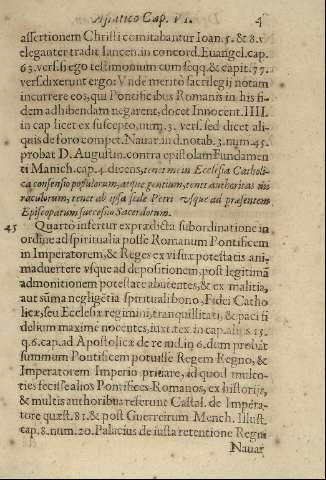 Asiatico Cap. VI. 4
assertionem Christi comitabantur Ioan. 5. & 8. v
eleganter tradit Iansen. in concord. Euangel. cap.
63. vers. si ego testimonium cum seqq. & capit. 77.
vers. dixerunt ergo: Vnde meritò sacrilegij notam
incurrere eos, qui Pontificibus Romanis in his fi-
dem adhibendam negarent, docet Innocent. IIII.
in cap licet ex suscepto, num. 3. vers. sed dicet ali-
quis de foro compet. Nauar. in d. notab. 3. num. 45.
probat D. Augustin. contra epistolam Fundamen
ti Manich. cap. 4. dicens, tenet me in Ecclesia Catholi-
ca consensio populorum, atque gentium; tenet authoritas mi
raculorum, tenet ab ipsa sede Petri vsque ad præsentem
Episcopatum successio Sacerdotum.
45 Quartò infertur ex prædicta subordinatione in
ordine ad spiritualia posse Romanum Pontificem
in Imperatorem, & Reges ex vi suæ potestatis ani-
maduertere vsque ad depositionem, post legitimã
admonitionem potestate abutentes, & ex malitia,
aut sũma negligẽtia spirituali bono, Fidei Catho
licæ, seu Ecclesiæ regimini, tranquillitati, & paci fi
delium maxime nocentes, iuxt. tex. in cap. alius 15.
q. 6. cap. ad Apostolicæ de re iud. in 6. dum probãt
summum Pontificem potuisse Regem Regno, &
Imperatorem Imperio priuare, ad quod multo-
ties fecisse alios Pontifices Romanos, ex historijs,
& multis authoribus referunt Castal. de Impera-
tore quæst. 81. & post Guerreirum Mench. Illust.
cap. 8. num. 20. Palacius de iusta retentione Regni
Nauar